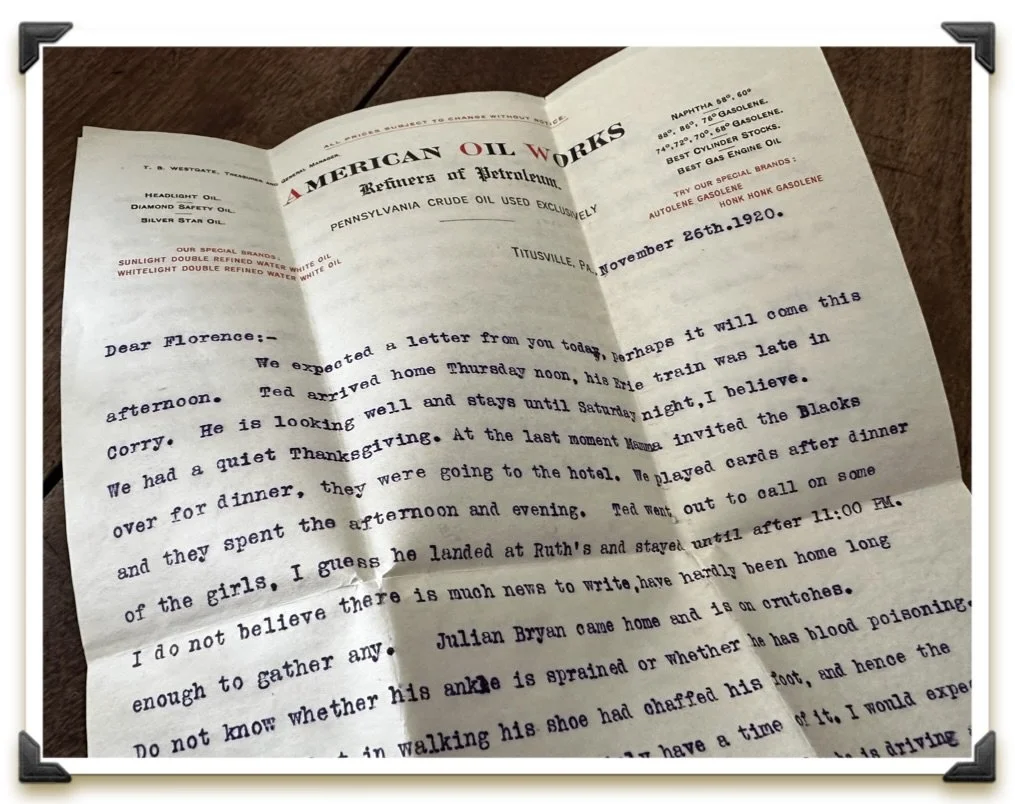 ALL PRICES SUBJECT TO CHANGE WITHOUT NOTICE.
T. B. WESTGATE, TREASURER AND GENERAL MANAGER.
AMERICAN OIL WORKS
Refiners of Petroleum.
PENNSYLVANIA CRUDE OIL USED EXCLUSIVELY
HEADLIGHT OIL.
DIAMOND SAFETY OIL.
SILVER STAR OIL.
OUR SPECIAL BRANDS:
SUNLIGHT DOUBLE REFINED WATER WHITE OIL
WHITELIGHT DOUBLE REFINED WATER WHITE OIL
NAPHTHA 58°, 60°
88°, 86°, 76° GASOLENE.
74°, 72°, 70°, 68° GASOLENE.
BEST CYLINDER STOCKS.
BEST GAS ENGINE OIL
TRY OUR SPECIAL BRANDS:
AUTOLENE GASOLENE
HONK HONK GASOLENE
TITUSVILLE, PA., November 26th.1920.
Dear Florence:-
We expected a letter from you today, perhaps it will come this
afternoon. Ted arrived home Thursday noon, his Erie train was late in
Corry. He is looking well and stays until Saturday night,I believe.
We had a quiet Thanksgiving. At the last moment Mamma invited the Blacks
over for dinner, they were going to the hotel. We played cards after dinner
and they spent the afternoon and evening. Ted went out to call on some
of the girls, I guess he landed at Ruth's and stayed until after 11:00 PM.
I do not believe there is much news to write,have hardly been home long
enough to gather any. Julian Bryan came home and is on crutches.
Do not know whether his ankle is sprained or whether he has blood poisoning.
in walking his shoe had chaffed his foot, and hence the
have a time of it. I would
is driving